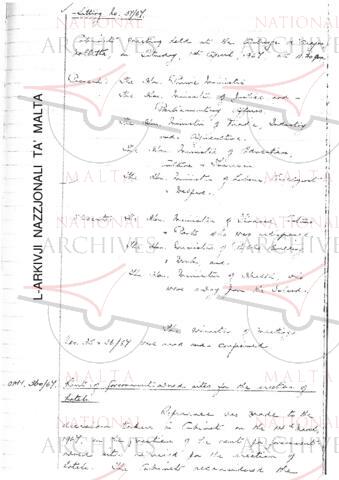 Sitting No. 37/67.
Cabinet meeting held at the Auberge d'Aragon
Valletta, on Saturday, 1st April, 1967 at
Present: The Hon. Prime Minister
The Hon. Minister of Justice and
Parliamentary Affairs
The Hon. Minister of Trade, Industry
and Agriculture.
The Hon. Minister of Education,
Culture & Tourism
The Hon. Minister of Labour,
& Welfare.
Absent: The Hon. Minister of Finance, Customs
& Ports who was indisposed
The Hon. Minister of Public Building
& Works, and
The Hon. Minister of Health, who
were away from the Island.
The Minutes of meetings
Nos. 35 & 36/67 were read and confirmed
OPM. 360/67.
Rents of Government-owned sites for the erection of
hotels
Reference was made to the
decision taken in Cabinet on the March,
1967, on the question of the rent of Government-
owned sites for the erection of
hotels. The Cabinet recommended the
L-ARKIVJI NAZZJONALI TA' MALTA
NATIONAL
ARCHIVES
MALTA